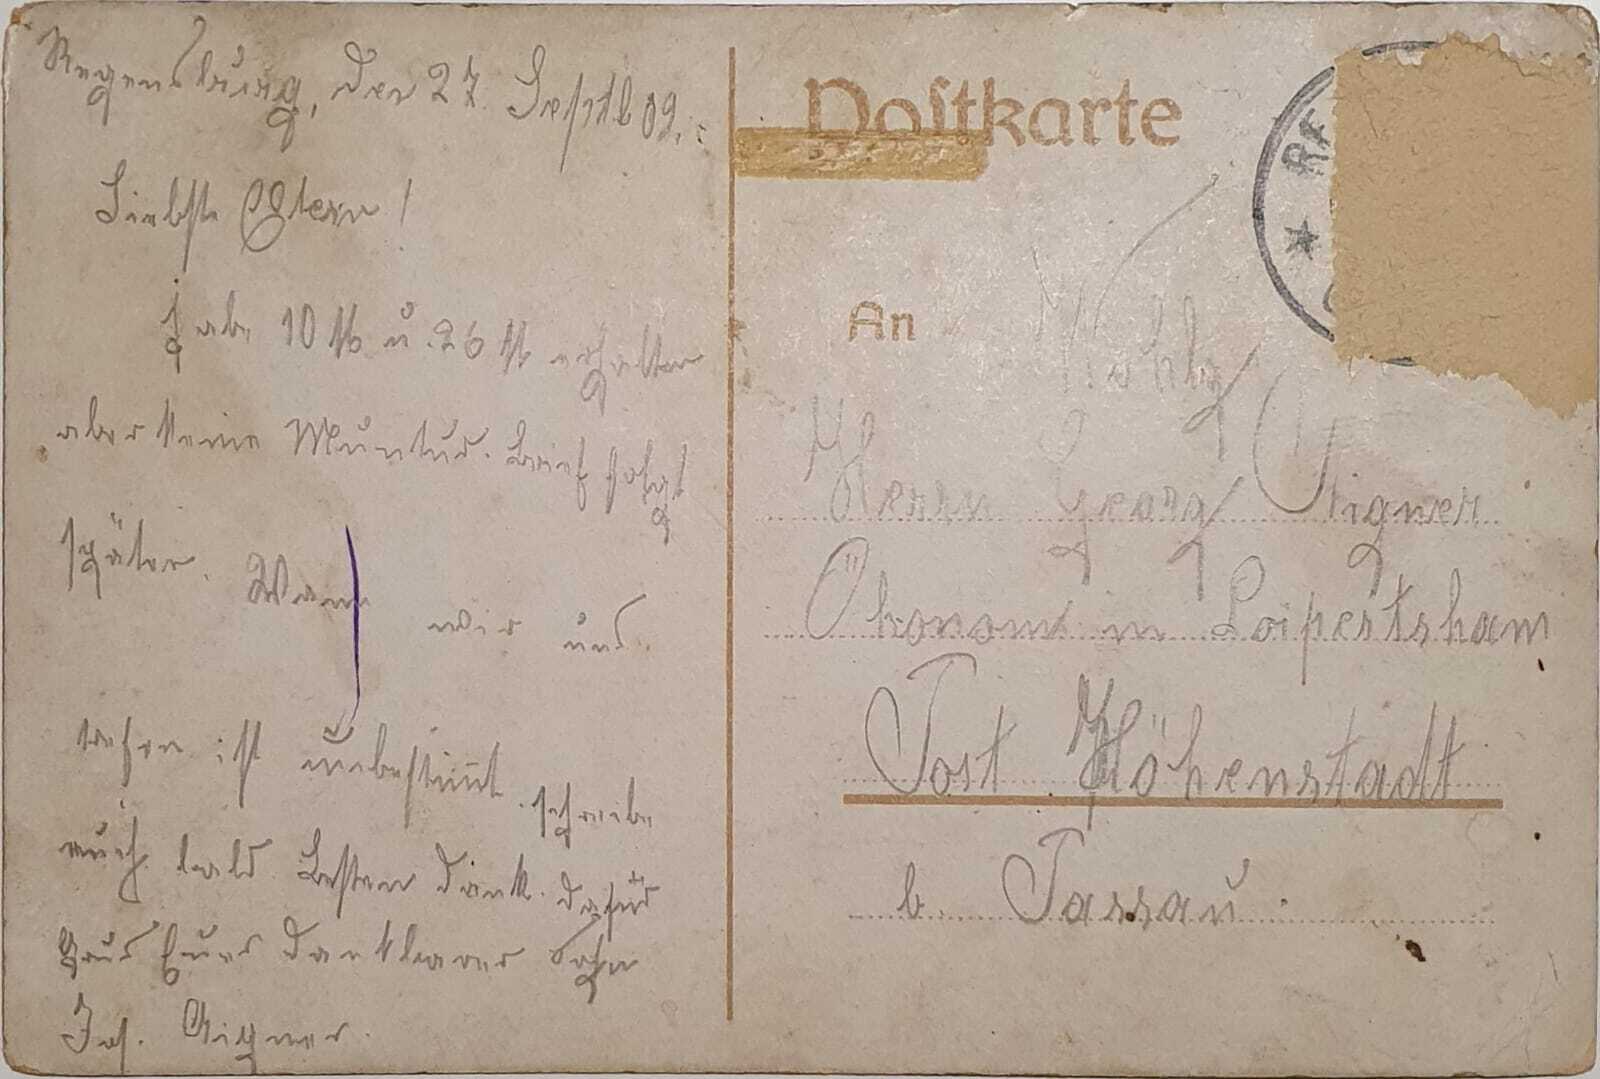 Regensburg, den 27. Septb 09.
Liebste Eltern!
habe 10 M u. 26 M erhalten
aber keine Muntur. Brief folgt
später. Wann wir uns
sehen ist unbestimmt. schreibe
euch bald. Besten Dank. dafür
Grus Euer dankbarer Sohn
Jos. Aigner.
Postkarte
RE
An
Wohlg.
Herrn Georg Aigner
Ökonom in Loipertsham
Post Höhenstadt
b. Passau.